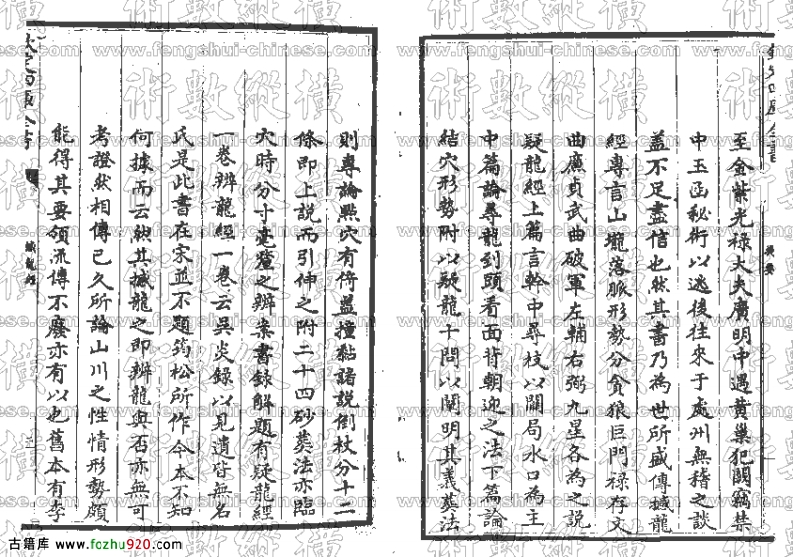 欽定四庫全書
提要
至金紫光禄大夫廣明中遇黄巢犯闕竊禁
中玉函秘術以逃後往來于處州無稽之談
蓋不足盡信也然其書乃為世所盛傳撼龍
經專言山壠落脈形勢分貪狼巨門禄存文
曲廉貞武曲破軍左輔右弼九星各為之說
疑龍經上篇言幹中尋枝以關局水口為主
中篇論尋龍到頭看面背朝迎之法下篇論
結穴形勢附以疑龍十問以闡明其義葬法
則專論㸃穴有倚葢撞黏諸說倒杖分十二
條即上說而引伸之附二十四砂葬法亦臨
穴時分寸毫釐之辨案書録解題有疑龍經
一卷辨龍經一卷云吳炎録以見遺皆無名
氏是此書在宋並不題筠松所作今本不知
何據而云然其撼龍之即辨龍與否亦無可
考證然相傳已久所論山川之性情形勢頗
能得其要領流傳不廢亦有以也舊本有李
欽定四庫全書
撼龍經
術數縱橫
www.fengshui-chinese.com
古籍库 www.fozhu920.com